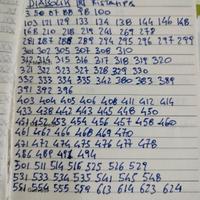 DIABOLIK
3 50 87 88 98 100
103 121 129 133 134 138 144 146 148
168 210 218 219 241 269 278
281 287 288 289 294 295 296 297 299
301 302 305 307 308 310
312 314 315 316 317 318 319 320
321 322 323 327 328 329 330
332 333 334 335 342 380 383 389
391 392 396
403 404 405 406 408 411 412 414
433 438 442 443 445 448 450
451 452 453 454 456 457 458 460
461 462 466 468 469 470
471 472 474 475 476 477 478
486 489 492 494
501 511 514 516 525 526 529
531 533 534 535 541 545 548
551 554 555 559 613 614 623 624